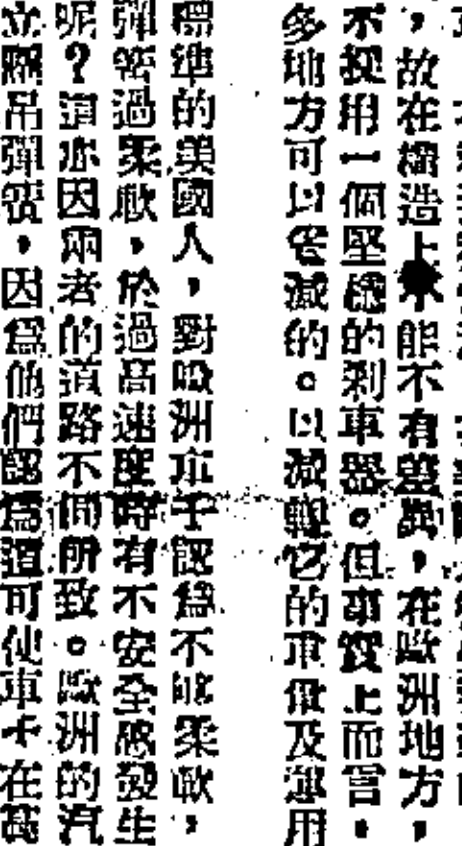 ，故在構造上不能不有差異，在歐洲地方，
不用一個堅穩的剎車器。但事實上而言，
多地方可以省減的。以減輕它的及運用
標準的美國人，對歐洲車子認為不夠柔軟，
彈簧過柔軟，於過高速度時有不安全感發生
呢？這亦因兩者的道路不同所致。歐洲的汽
立吊彈簧，因為他們認為這可使車子在